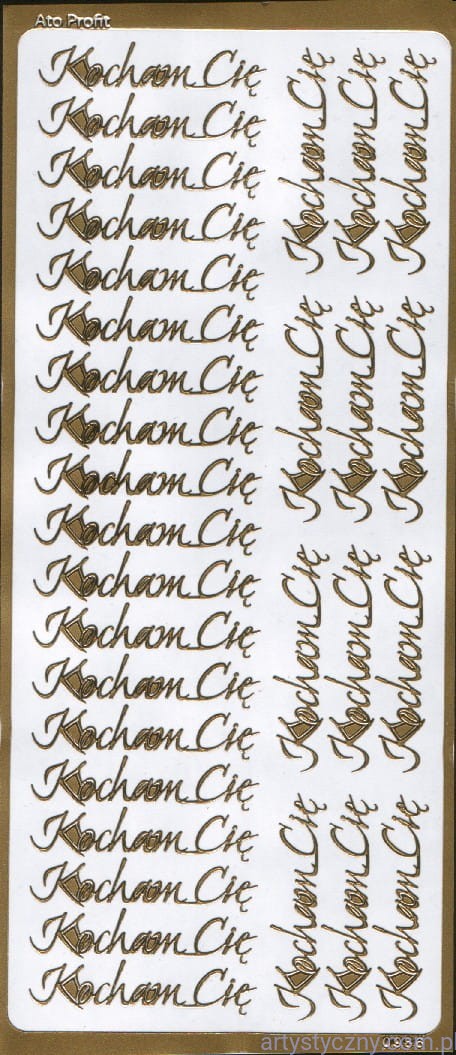 Ato Profit
Kocham Cię
Kocham Cię
Kocham Cię
Kocham Cię
Kocham Cię
Kocham Cię
Kocham Cię
Kocham Cię
Kocham Cię
Kocham Cię
Kocham Cię
Kocham Cię
Kocham Cię
Kocham Cię
Kocham Cię
Kocham Cię
Kocham Cię
Kocham Cię
Kocham Cię
Kocham Cię
Kocham Cię
Kocham Cię
Kocham Cię
Kocham Cię
Kocham Cię
Kocham Cię
Kocham Cię
Kocham Cię
Kocham Cię
Kocham Cię
Kocham Cię
artystyczny.com.p